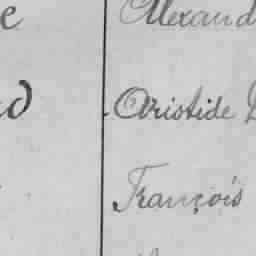 e Alexand
d Aristide
François